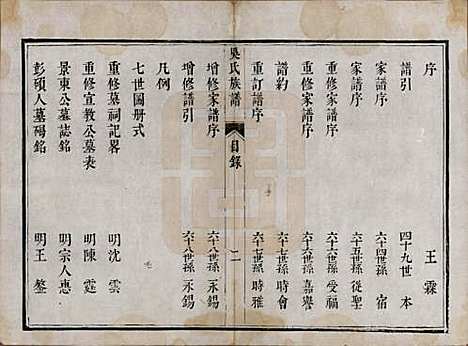 序 王霖
譜引 四十九世 本
家譜序 六十四世孫 宿
家譜序 六十五世孫 從聖
重修家譜序 六十六世孫 受福
重修家譜序 六十六世孫 嘉譽
譜約 六十七世孫 時會
重訂譜序 六十七世孫 時雅
吳氏族譜 目錄 二
增修家譜序 六十八世孫 永錫
增修譜引 六十八世孫 永錫
凡例
七世圖冊式
重修墓祠記畧 明沈雲
重修宣教公墓表 明陳霆
景東公墓誌銘 明宗人惠
彭碩人墓碣銘 明王鏊